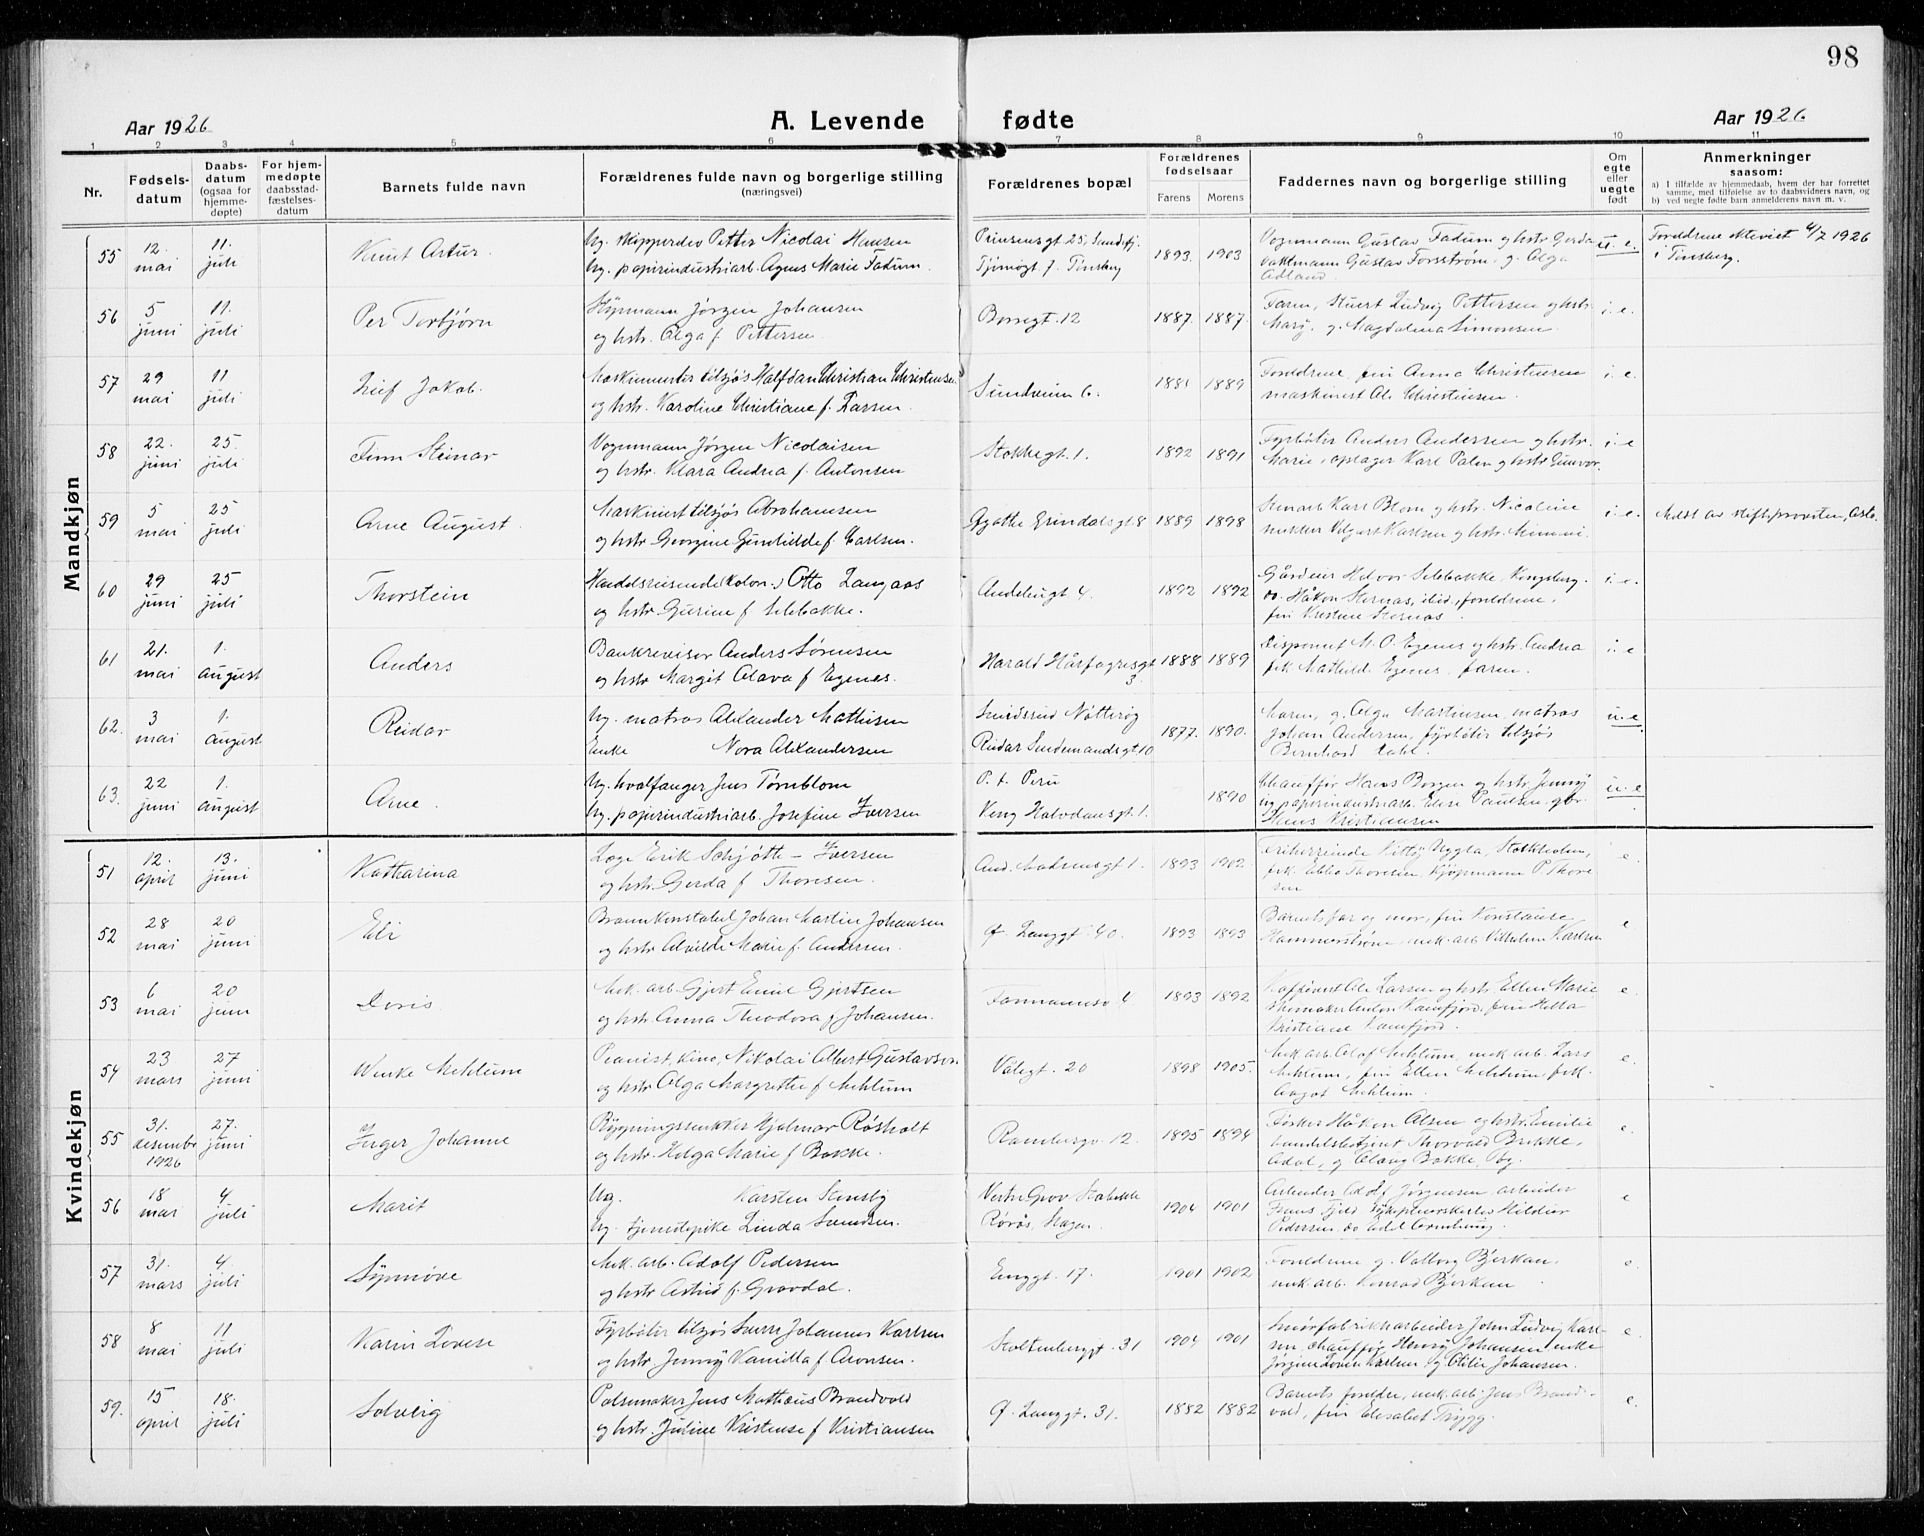 98
Aar 1926
A. Levende fødte
Aar 1926.
1 2 3 4 5 6 7 8 9 10 11
Nr.
Fødselsdatum
Daabsdatum (ogsaa for hjemmedøpte)
For hjemmedøpte daabsstadfæstelsesdatum
Barnets fulde navn
Forældrenes fulde navn og borgerlige stilling (næringsvei)
Forældrenes bopæl
Forældrenes fødselsaar
Farens Morens
Faddernes navn og borgerlige stilling
Om egte eller uegte født
Anmerkninger saasom:
a) I tilfælde av hjemmedaab, hvem der har forrettet samme, med tilføielse av to daabsvidners navn, og
b) ved uegte fødte barn anmelderens navn m. v.
Mandkjøn
55 12. mai 11. juli Knut Artur.
Ug. skipperdev Petter Nicolai Hansen
Ug. papirindustriarb. Agnes Marie Fadum.
Prinsensgt 25, Sandefj.
Tjømøgt. 7. Tønsberg
1893. 1903
Vognmann Gustav Fadum og hstr Gerda
vaktmann Gustav Forsström, g. Olga
Adland
u. e.
Foreldrene ekteviet 4/7 1926
i Tønsberg.
56 5 juni 11. juli Per Torbjørn
Styrmann Jørgen Johansen
og hstr. Olga f. Pettersen
Borregt. 12
1887. 1887.
Faren, Stuert Ludvig Pettersen og hstr
Mary, g. Magdalena Simonsen
i. e.
57 29 mai 11 juli Leif Jakob.
Maskinmester tilsjøs Halfdan Christian Christensen
og hstr. Karoline Christiane f. Larsen.
Sundveien 6.
1881 1889
Foreldrene, frk Anna Christensen
maskinist Ole Christensen.
i. e.
58 22. juni 25. juli Finn Steinar
Vognmann Jørgen Nicolaisen
og hstr. Klara Andrea f. Antonsen
Stokkegt. 1.
1892 1891
Fyrbøter Anders Andersen og hstr.
Marie, oplager Karl Palen og hstr Gunvor.
i. e
59 5 mai 25 juli Arne August.
Maskinist tilsjøs Abrahamsen
og hstr. Georgine Gunhilde f. Carlsen.
Agathe Grindalsgt. 8
1889 1898
Karl Blom og hstr. Nicoline
snekker Karlsen og hstr. Mimmi.
i. e.
Meldt av stiftsprovsten, Oslo.
60 29 juni 25 juli Thorstein
Handelsreisende (kolon.) Otto Langaas
og hstr. Gurine f Selebakke.
Andebugt 4.
1892 1892
Gårdeier Halvor Selebakke, Kongsberg.
do. Håkon Sternas, ibid, foreldrene,
frk Kristine Stornas.
i. e.
61 21. mai 1. august Anders
Bankrevisor Anders Sørensen
og hstr Margit Olava f Egenes.
Harald Hårfagresgt
3.
1888 1889
Disponent M. O. Egenes og hstr. Andrea
frk Mathilde Egenes, faren.
i. e
62. 3 mai 1. august Reidar
Ug. matros Alexander Mathisen
Enke Nora Alexandersen
Smidsrød Nøtterøy
Reidar Sendemandsgt. 10
1877. 1890.
Maren, g. Olga Martinsen, matros
Johan Andersen, fyrbøter tilsjøs
Bernhard
u. e
63. 22 juni 1. august Arne.
Ug. hvalfanger Jens Tørnblom
Ug. papirindustriarb. Josefine Iversen
P. t. Peru
Kong Halvdansgt. 1.
1890
Chauffør Hans Borgen og hstr. Jenny
Ug papirindustriarb. Else Paulsen, gbr
Hans Kristiansen
u. e
Kvindekjøn
51 12. april 13. juni Katharina
Læge Erik Schjøtte-Iversen
og hstr. Gerda f Thoresen.
And. Madsensgt 1.
1893 1902.
Frøken Kitty Nygla, Stockholm,
frk. Ebba Thoresen, kjøpmann P. Thore
sen
e.
52 28 mai 20 juni Eli
Brannkonstabel Johan Martin Johansen
og hstr. Alvilde Marie f. Andersen.
Ø. Langgt. 40.
1893 1893
Barnets far og mor, frk Konstanse
Hammerstrøm, mek. arb. Vilhelm Karlsen
e
53 6 mai 20 juni Doris
Mek. arb. Gjert Emil Gjertsen
og hstr. Anna Theodora f Johansen.
1893 1892
Ole Larsen og hstr. Ellen Marie
Skomaker Anton Kamfjord, frk Helta
Kristiane Kamfjord.
e.
54 23 mars 27 juni Wenke Mehlum
Pianist, kino, Nikolai Albert Gustavsen
og hstr. Olga Margrethe f Mehlum
Valøgt. 20
1898 1905.
Mek arb. Olaf Mehlum, mek arb. Lars
Mehlum, frk Ellen Mehlum, frk.
Aagot Mehlum.
e.
55 31. desember 1926 27. juni Inger Johanne
Rygningssnekker Hjalmar Røsholt
og hstr. Helga Marie f Bakke.
Rambergv. 12.
1895 1894
Fisker Håkon Olsen og hstr Emilie
handelsbetjent Thorvald Bakke,
Adal, g Olaug Bakke,
e.
56 18 mar 4 juli Marit
Ug. Karsten Stensby
Ug. tjenestepike Linda Svendsen.
Vestre Grov Stabekk
Røros, Hagan.
1904 1901
Arbeider Adolf Jørgensen, arbeider
Hans Fjeld
Pedersen
e
57 31. mars 4. juli Synnøve
Mek. arb. Adolf Pedersen
og hstr Astrid f. Gravdal.
Enggt. 17.
1901 1902
Foreldrene g. Valborg Bjerkan,
mek. arb. Konrad Bjerkan
e.
58 8 mai 11 juli Karin Lovise
Fyrbøter tilsjøs Sverre Johannes Karlsen
og hstr. Jenny Kamilla f Aronsen.
Stoltenberggt. 31
1904 1901
Smørfabrikkarbeider John Ludvig Karl-
sen, chauffør Henry Johansen, enke
Jørgine Lovise Karlsen, g. Otilie Johansen.
e.
59. 15 april 18. juli Solveig
Pølsemaker Jens Mathæus Brandvold
og hstr. Juline Kristense f Kristiansen
Ø. Langgt. 31.
1882 1882
Barnets foreldre, mek. arb. Jens Brand-
vold, frk Elisabet Trygg.
e.